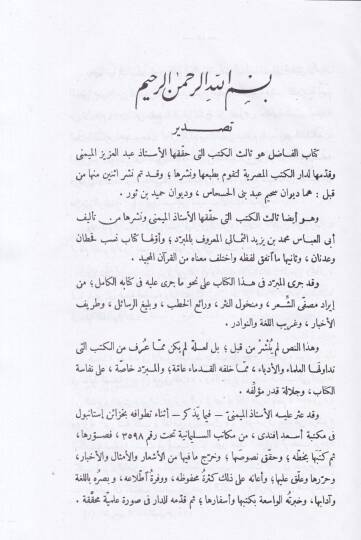 بسم الله الرحمن الرحيم
تصدير
كتاب الفاضل هو ثالث الكتب التى حققها الأستاذ عبد العزيز الميمنى
وقدّمها لدار الكتب المصرية لتقوم بطبعها ونشرها؛ وقد تم نشر اثنين منها من
قبل: هما ديوان سحيم عبد بنى الحسحاس، وديوان حميد بن ثور.
وهو أيضا ثالث الكتب التى حقّقها الأستاذ الميمنى ونشرها من تأليف
أبى العباس محمد بن يزيد الثمالى المعروف بالمبرّد؛ وأوّلها كتاب نسب قحطان
وعدنان، وثانيها ما اتفق لفظه واختلف معناه من القرآن المجيد.
وقد جرى المبرّد فى هذا الكتاب على نحو ما جرى عليه فى كتابه الكامل؛ من
إيراد مصفّى الشِّعر، ومنخول النثر، ورائع الخطب، وبليغ الرسائل، وطريف
الأخبار، وغريب اللغة والنوادر.
وهذا النص لم يُنْشَرْ من قبل؛ بل لعلّه لم يكن ممّا عُرف من الكتب التى
تداولها العلماء والأدباء، ممّا خلفه القدماء عامّة؛ والمبرّد خاصّة، على نفاسة
الكتاب، وجلالة قدر مؤلّفه.
وقد عثر عليه الأستاذ الميمنىّ – فيما يذكر – أثناء تطوافه بخزائن إستانبول
فى مكتبة أسعد افندى، من مكاتب السليمانية تحت رقم ٣٥٩٨، فصوّرها،
ثم كتبها بخطّه؛ وحقّق نصوصها؛ وخرّج ما فيها من الأشعار والأمثال والأخبار،
وحرّرها وعلّق عليها؛ وأعانه على ذلك كثرة محفوظه، ووفرة اطّلاعه، وبصره باللغة
وآدابها، وخبرته الواسعة بكتبها وأسفارها؛ ثم قدّمه للدار فى صورة علمية محقّقة.